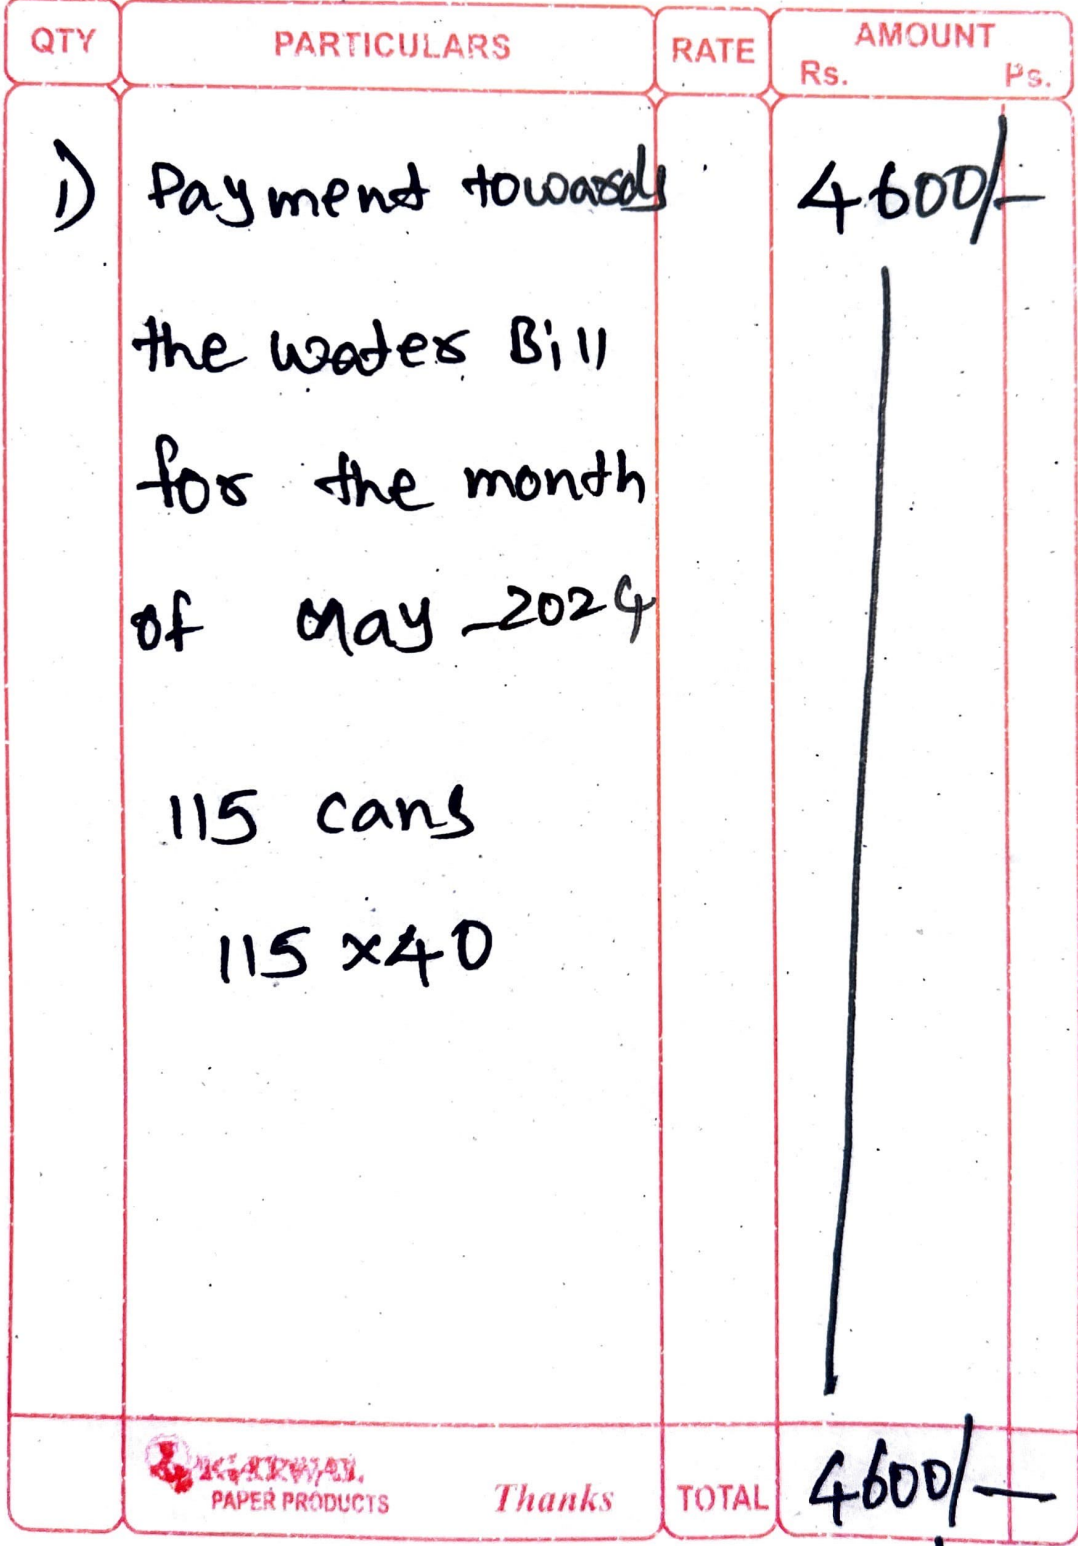 QTY PARTICULARS RATE AMOUNT
Rs. Ps.
1) Payment towards 4600/-
the water Bill
for the month
of May 2024
115 cans
115 x 40
KARWAL
PAPER PRODUCTS Thanks TOTAL 4600/-